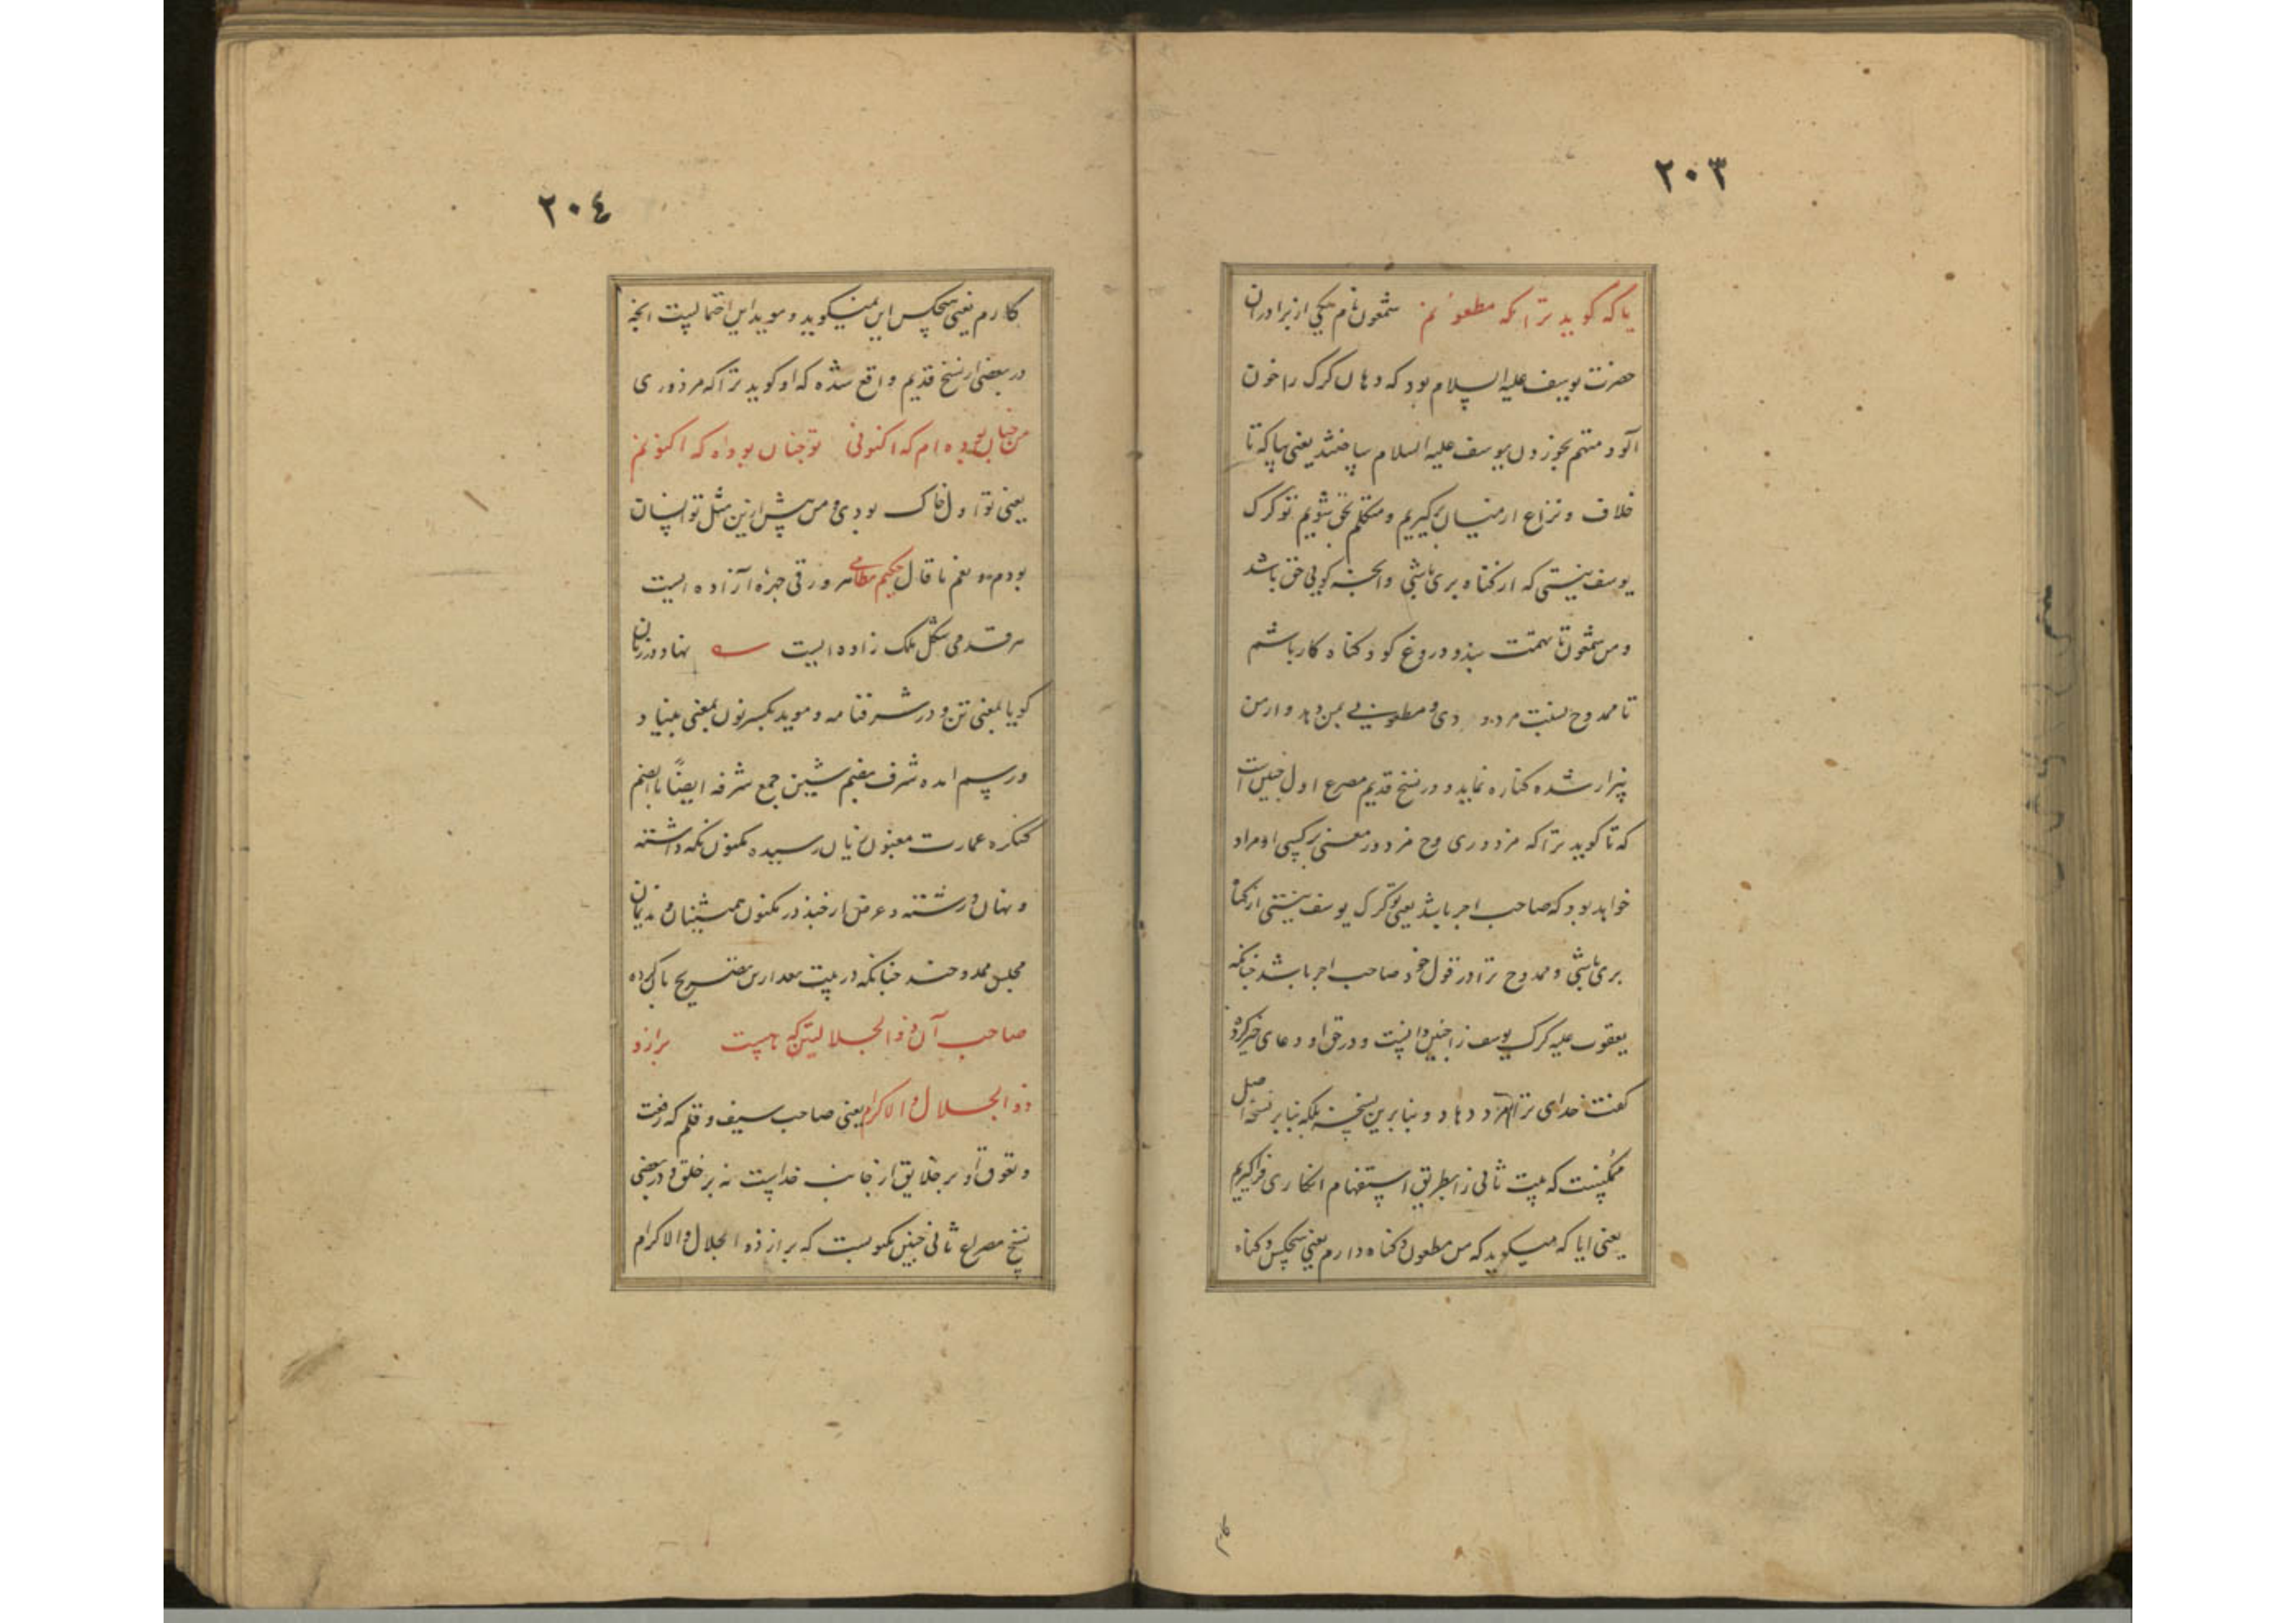 ۲۰۳
یا که گوید ترا که مطعونم شمعون نام یکی از برادران
حضرت یوسف علیه السلام بود که دهان گرگ را خون
آلود متهم بخوردن یوسف علیه السلام ساختند یعنی بیا که تا
خلاف و نزاع از میان برگیریم و متکلم بحق شویم تو گرگ
یوسف نیستی که از گناه بری باشی و آنچه گویی حق باشد
و من شمعون تا تهمت بندو دروغ گو و گناه کار باشم
تا ممدوح نسبت مردودی و مطعونی بمن دهد و از من
بیزار شده کناره نماید و در نسخ قدیم مصرع اول چنین است
که تا گوید ترا که مزدوری وح مزدور معنی بر کسی او مراد
خواهد بود که صاحب اجر باشد یعنی تو گرگ یوسف نیستی از گناه
بری باشی و ممدوح ترا در قول خود صاحب اجر باشد چنانکه
یعقوب علیه گرگ یوسف را چنین دانست و در حق او دعای خیر کرده
گفت خدای ترا مزد دهاد و بنابرین نسخه بلکه بنابر نسخه اصل
ممکنست که بیت ثانی را بطریق استفهام انکاری فراگیریم
یعنی ایا که میگوید که من مطعون و گناه دارم یعنی هیچکس و گناه
۲۰٤
کارم یعنی هیچکس این نمیگوید و موید این احتمالیست آنچه
در بعضی از نسخ قدیم واقع شده که او گوید ترا که مزدوری
من چنان بوده ام که اکنونی تو چنان بوده که اکنونم
یعنی تو اول خاک بودی و من پیش ازین مثل تو انسان
بودم و نعم ما قال حکیم نظامی هر ورقی چهره آزاده ایست
هر قدمی شکل ملک زاده ایست نهاد وزن
گویا بمعنی تن و در شرفنامه و موید بکسر نون بمعنی بنیاد
و رسم آمده شرف بضم شین جمع شرفه ایضا بالضم
کنگره عمارت مغبون زیان رسیده مکنون نگه داشته
و نهان و رشته در مکنون همنشینان و ندیمان
مجلس ممدوحند چنانکه در بیت بعد ازین تصریح باکرده
صاحب آن ذو الجلالین که نیست براز و
ذو الجلال و الاکرام یعنی صاحب سیف و قلم که رفعت
و تفوق او بر خلایق از جانب خداست نه بر خلق و در بعضی
نسخ مصراع ثانی چنین مکتوبست که براز ذو الجلال و الاکرام